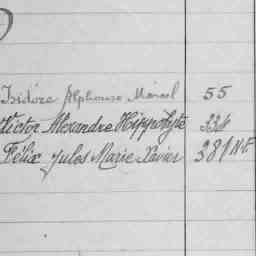 Isidore Alphonse Marcel 55
Victor Alexandre Hippolyte 334
Félix Jules Marie Xavier 381 N.F